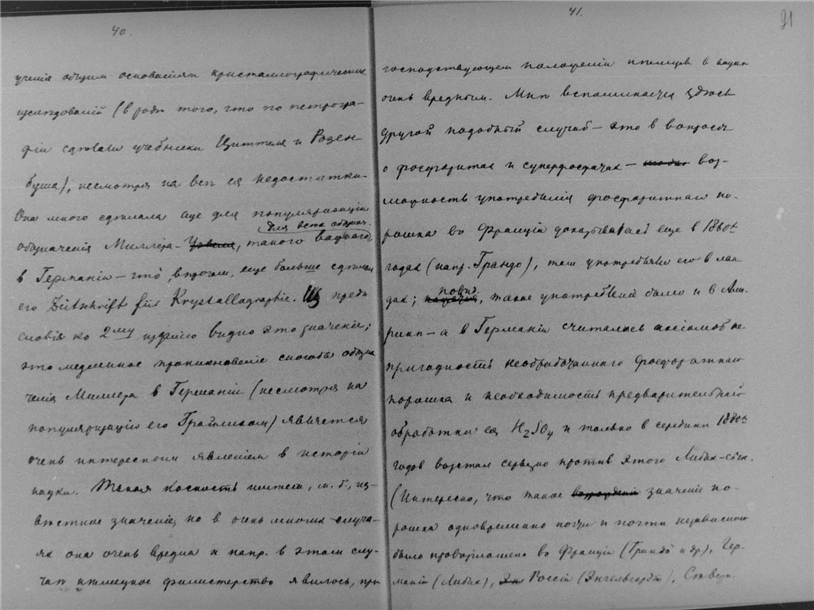 40.
ученія общим основаніям кристаллографических
изслѣдованій (в родѣ того, что по петрогра-
фіи сдѣлали учебники Циттеля и Розен-
буша), несмотря на всѣ ея недостатки.
Она много сдѣлала еще для популяризаціи
обозначенія Миллера, такого важнаго
в Германіи – что, впрочем, еще больше сдѣлал
его Zeitschrift für Krystallographie. Из преди-
словія ко 2му изданію видно это значеніе;
это медленное проникновеніе способа обозна-
ченія Миллера в Германіи (несмотря на
популяризацію его Грайлихом) является
очень интересным явленіем в исторіи
науки. Такая косность имѣет, м. б., из-
вѣстное значеніе, но в очень многих случа-
ях она очень вредна и напр. в этом слу-
чаѣ нѣмецкое филистерство явилось, при
41.
21
господствующем положеніи нѣмцев в наукѣ
очень вредным. Мнѣ вспоминается здѣсь
другой подобный случай – это в вопросѣ
о фосфоритах и суперфосфатах – воз-
можность употребленія фосфоритнаго по-
рошка во Франціи доказывается еще в 1860х
годах (напр. Грандо), там употребляли его в
также употребляем был и в Аме-
рикѣ – а в Германіи считалась аксіомой не-
пригодность необработаннаго фосфоритнаго
порошка и необходимость предварительной
обработки ея H2SO4 и только в серединѣ 1880х
годов возстал серьезно против этого
(Интересно, что такое значеніе по-
рошка одновременно почти и почти независимо
было провозглашено во Франціи (Грандо и др.), Гер-
маніи, Россіи (Энгельгардт),